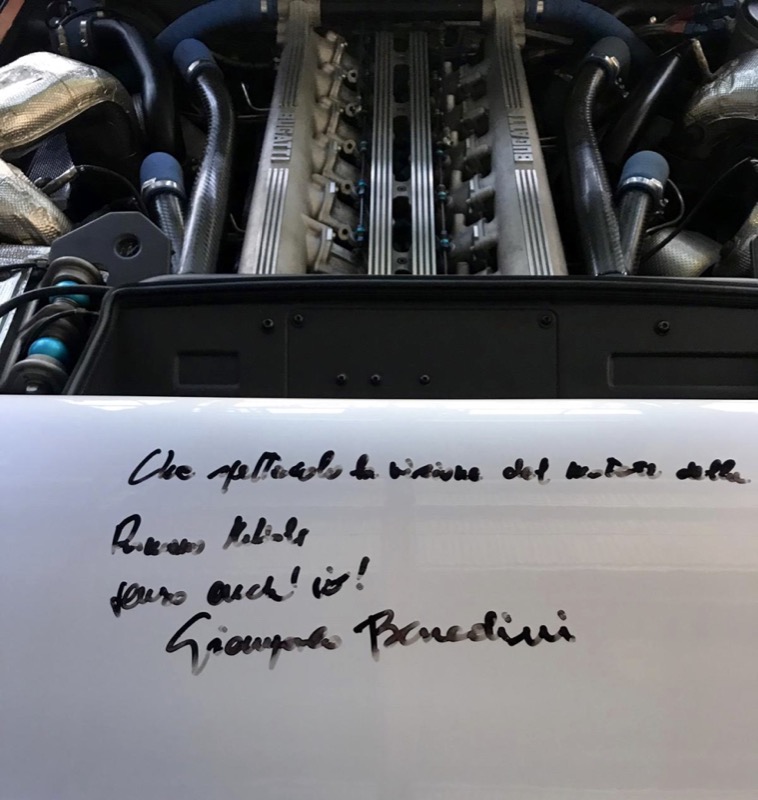 BUGATTI
BUGATTI
Che spettacolo la visione del motore della
Romano
anch' io!
Giampaolo Benedini